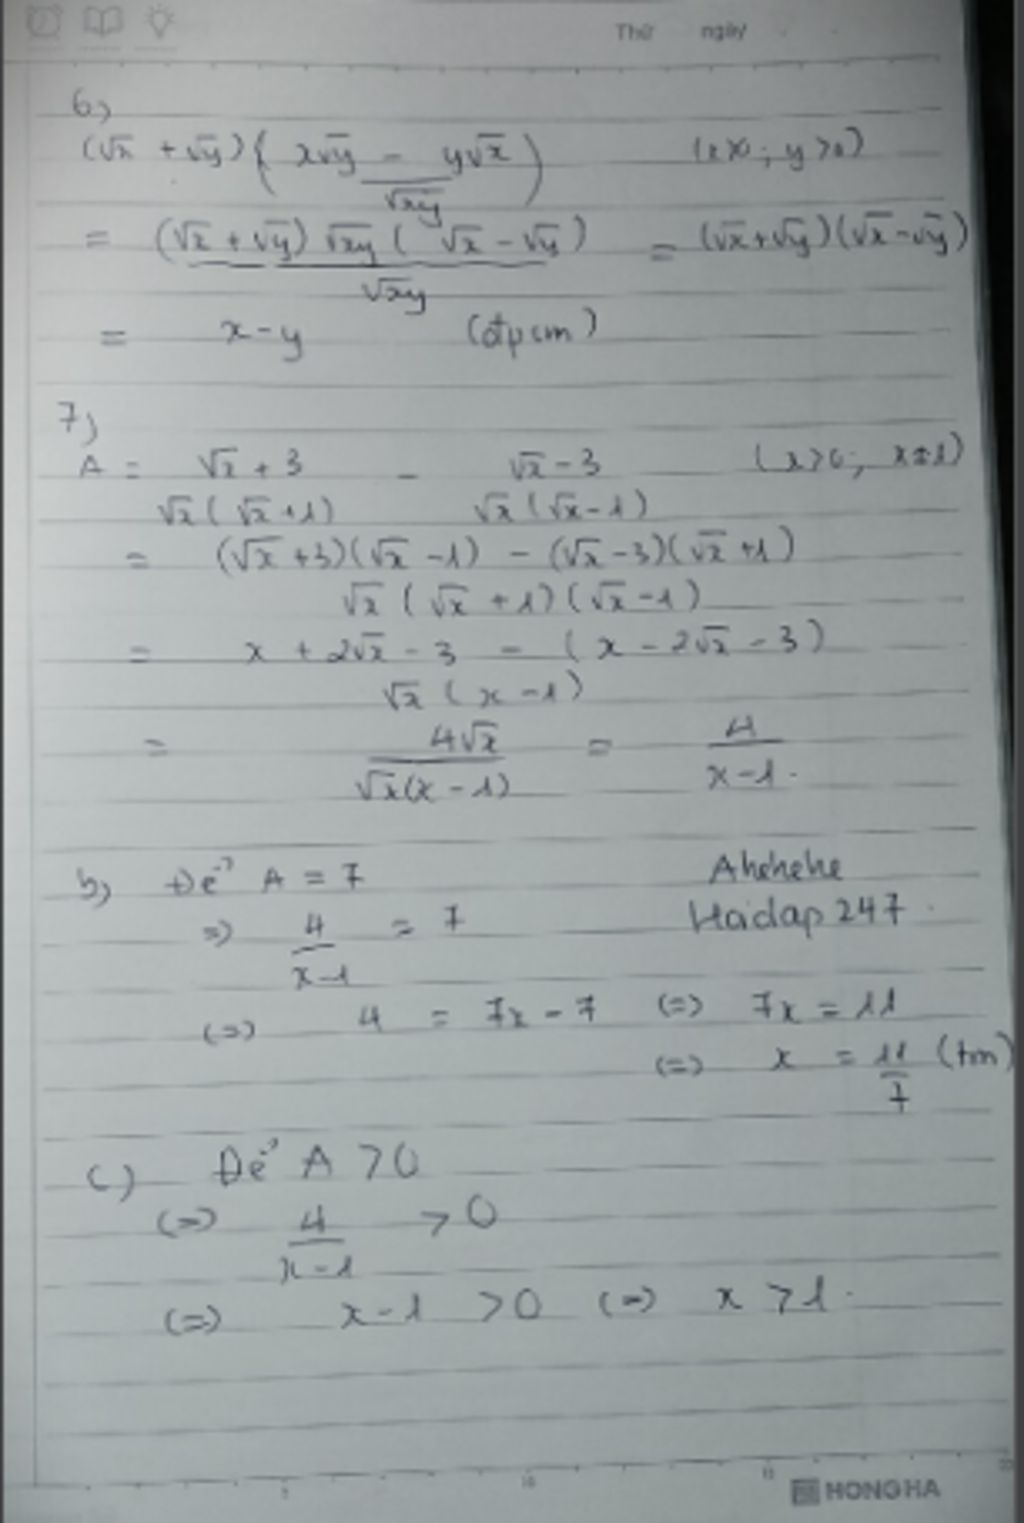 Thứ ngày
6)
(√x + √y)( (x√y - y√x)/√xy ) (x>0; y>0)
= (√x + √y) √xy ( √x - √y ) / √xy = (√x+√y)(√x-√y)
= x-y (đpcm)
7)
A = (√x + 3)/(√x(√x+1)) - (√x-3)/(√x(√x-1)) (x>0; x≠1)
= ((√x+3)(√x-1) - (√x-3)(√x+1))/(√x(√x+1)(√x-1))
= (x + 2√x - 3 - (x - 2√x - 3))/(√x(x-1))
= 4√x/(√x(x-1)) = 4/(x-1).
b) Để A = 7 Ahehehe
=> 4/(x-1) = 7 Hoidap247.
(=) 4 = 7x - 7 (=) 7x = 11
(=) x = 11/7 (tm)
c) Để A > 0
(=) 4/(x-1) > 0
(=) x-1 > 0 (=) x > 1.
5 10 15 20
HONG HA